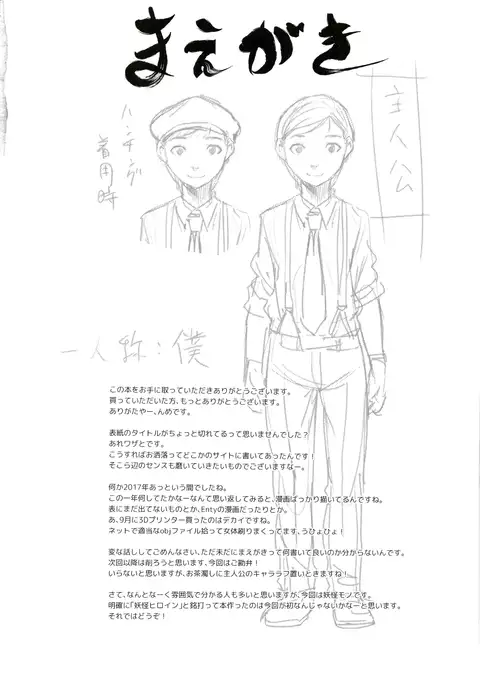 まえがき
主人公
ハンチング
着用時
一人称：僕
この本をお手に取っていただきありがとうございます。
買っていただいた方、もっとありがとうございます。
ありがたやー、んめです。
表紙のタイトルがちょっと切れてるって思いませんでした？
あれワザとです。
こうすればお洒落ってどこかのサイトに書いてあったんです！
そこら辺のセンスも磨いていきたいものでございますなー。
何か2017年あっという間でしたね。
この一年何してたかなーなんて思い返してみると、漫画ばっかり描いてるんですね。
表にまだ出てないものとか、Entyの漫画だったりとか。
あ、9月に3Dプリンター買ったのはデカイですね。
ネットで適当なobjファイル拾って女体刷りまくってます、うひょひょ！
変な話ししてごめんなさい、ただ未だにまえがきって何書いて良いのか分からないんです。
次回以降は削ろうと思います、今回はご勘弁！
いらないと思いますが、お茶濁しに主人公のキャララフ置いときますね！
さて、なんとなーく雰囲気で分かる人も多いと思いますが、今回は妖怪モノです。
明確に「妖怪ヒロイン」と銘打って本作ったのは今回が初なんじゃないかなーと思います。
それではどうぞ！